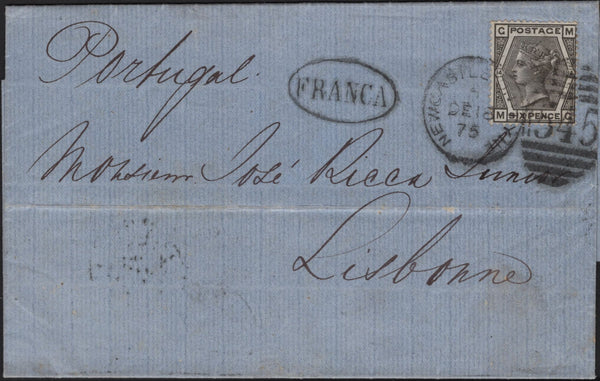 G POSTAGE M
M SIX PENCE G
NEWCASTLE
DE 18
75
545
Portugal.
FRANCA
Monsieur José Ricca Junior
Lisbonne